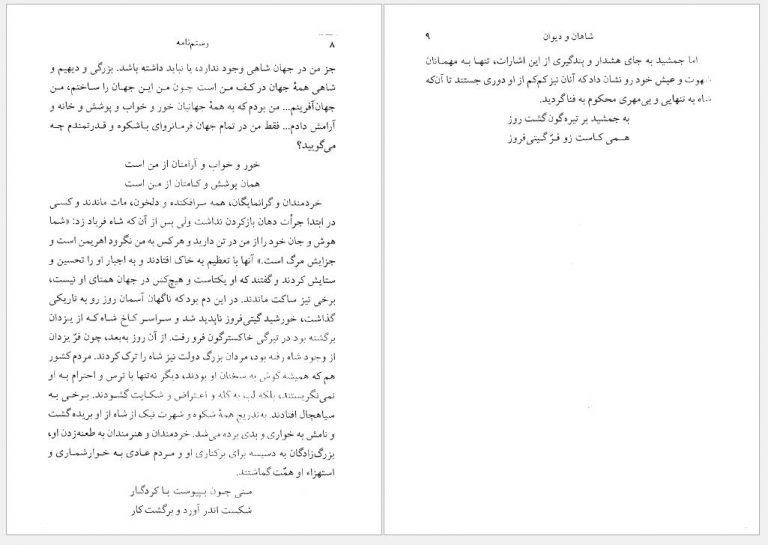 ۸ رستم‌نامه
جز من در جهان شاهی وجود ندارد، یا نباید داشته باشد. بزرگی و دیهیم و
شاهی همهٔ جهان در کف من است چون من این جهان را ساختم، من
جهان‌آفرینم... من بودم که به همهٔ جهانیان خور و خواب و پوشش و خانه و
آرامش دادم... فقط من در تمام جهان فرمانروای باشکوه و قدرتمندم چه
می‌گویید؟
خور و خواب و آرامتان از من است
همان پوشش و کامتان از من است
خردمندان و گرانمایگان، همه سرافکنده و دلخون، مات ماندند و کسی
در ابتدا جرأت دهان بازکردن نداشت ولی پس از آن که شاه فریاد زد: «شما
هوش و جان خود را از من در تن دارید و هر کس به من نگرود اهریمن است و
جزایش مرگ است.» آنها با تعظیم به خاک افتادند و به اجبار او را تحسین و
ستایش کردند و گفتند که او یکتاست و هیچ‌کس در جهان همتای او نیست،
برخی نیز ساکت ماندند. در این دم بود که ناگهان آسمان روز رو به تاریکی
گذاشت، خورشید گیتی‌فروز ناپدید شد و سراسر کاخ شاه که از یزدان
برگشته بود در تیرگی خاکسترگون فرو رفت. از آن روز به‌بعد، چون فرّ یزدان
از وجود شاه رفته بود، مردان بزرگ دولت نیز شاه را ترک کردند. مردم کشور
هم که همیشه گوش به سخنان او بودند، دیگر نه‌تنها با ترس و احترام به او
نمی‌نگریستند، بلکه لب به گله و اعتراض و شکایت گشودند. برخی به
سیاهچال افتادند. به‌تدریج همهٔ شکوه و شهرت نیک از شاه از او بریده گشت
و نامش به خواری و بدی برده می‌شد. خردمندان و هنرمندان به طعنه‌زدن او،
بزرگ‌زادگان به دسیسه برای برکناری او و مردم عادی به خوارشماری و
استهزاء او همّت گماشتند.
منی چون بپیوست با کردگار
شکست اندر آورد و برگشت کار
شاهان و دیوان ۹
اما جمشید به جای هشدار و پندگیری از این اشارات، تنها به مهمانان
شهوت و عیش خود رو نشان داد که آنان نیز کم‌کم از او دوری جستند تا آن‌که
شاه به تنهایی و بی‌مهری محکوم به فنا گردید.
به جمشید بر تیره‌گون گشت روز
همی کاست زو فرّ گیتی‌فروز